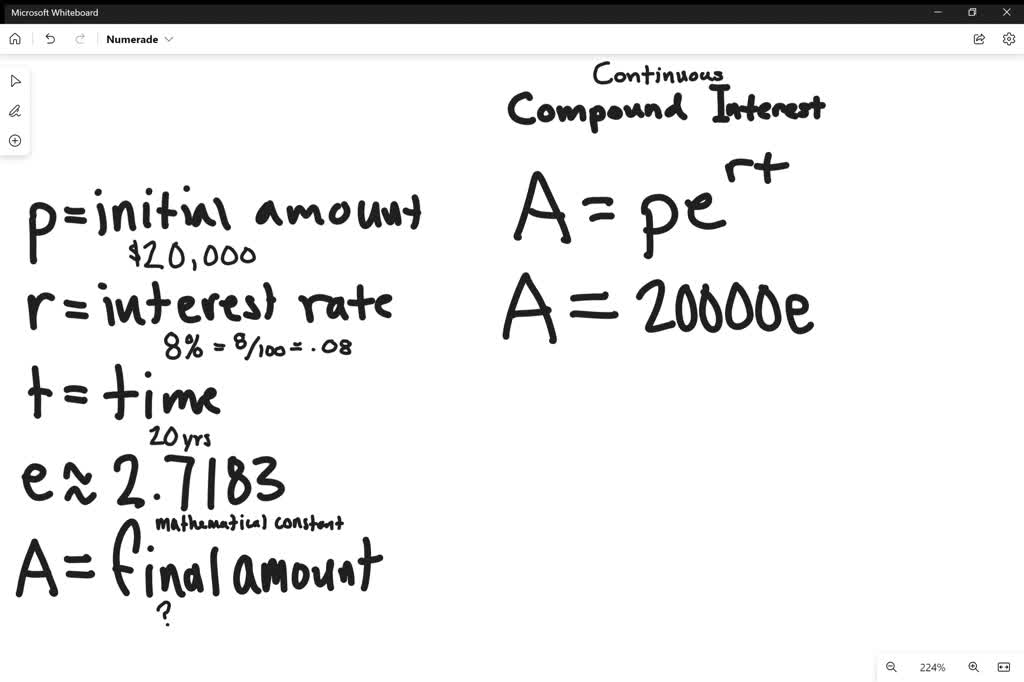 Microsoft Whiteboard
Numerade
Continuous
Compound Interest
A = pe^rt
A = 20000e
p = initial amount
$20,000
r = interest rate
8% = 8/100 = .08
t = time
20 yrs
e ≈ 2.7183
mathematical constant
A = final amount
?
224%